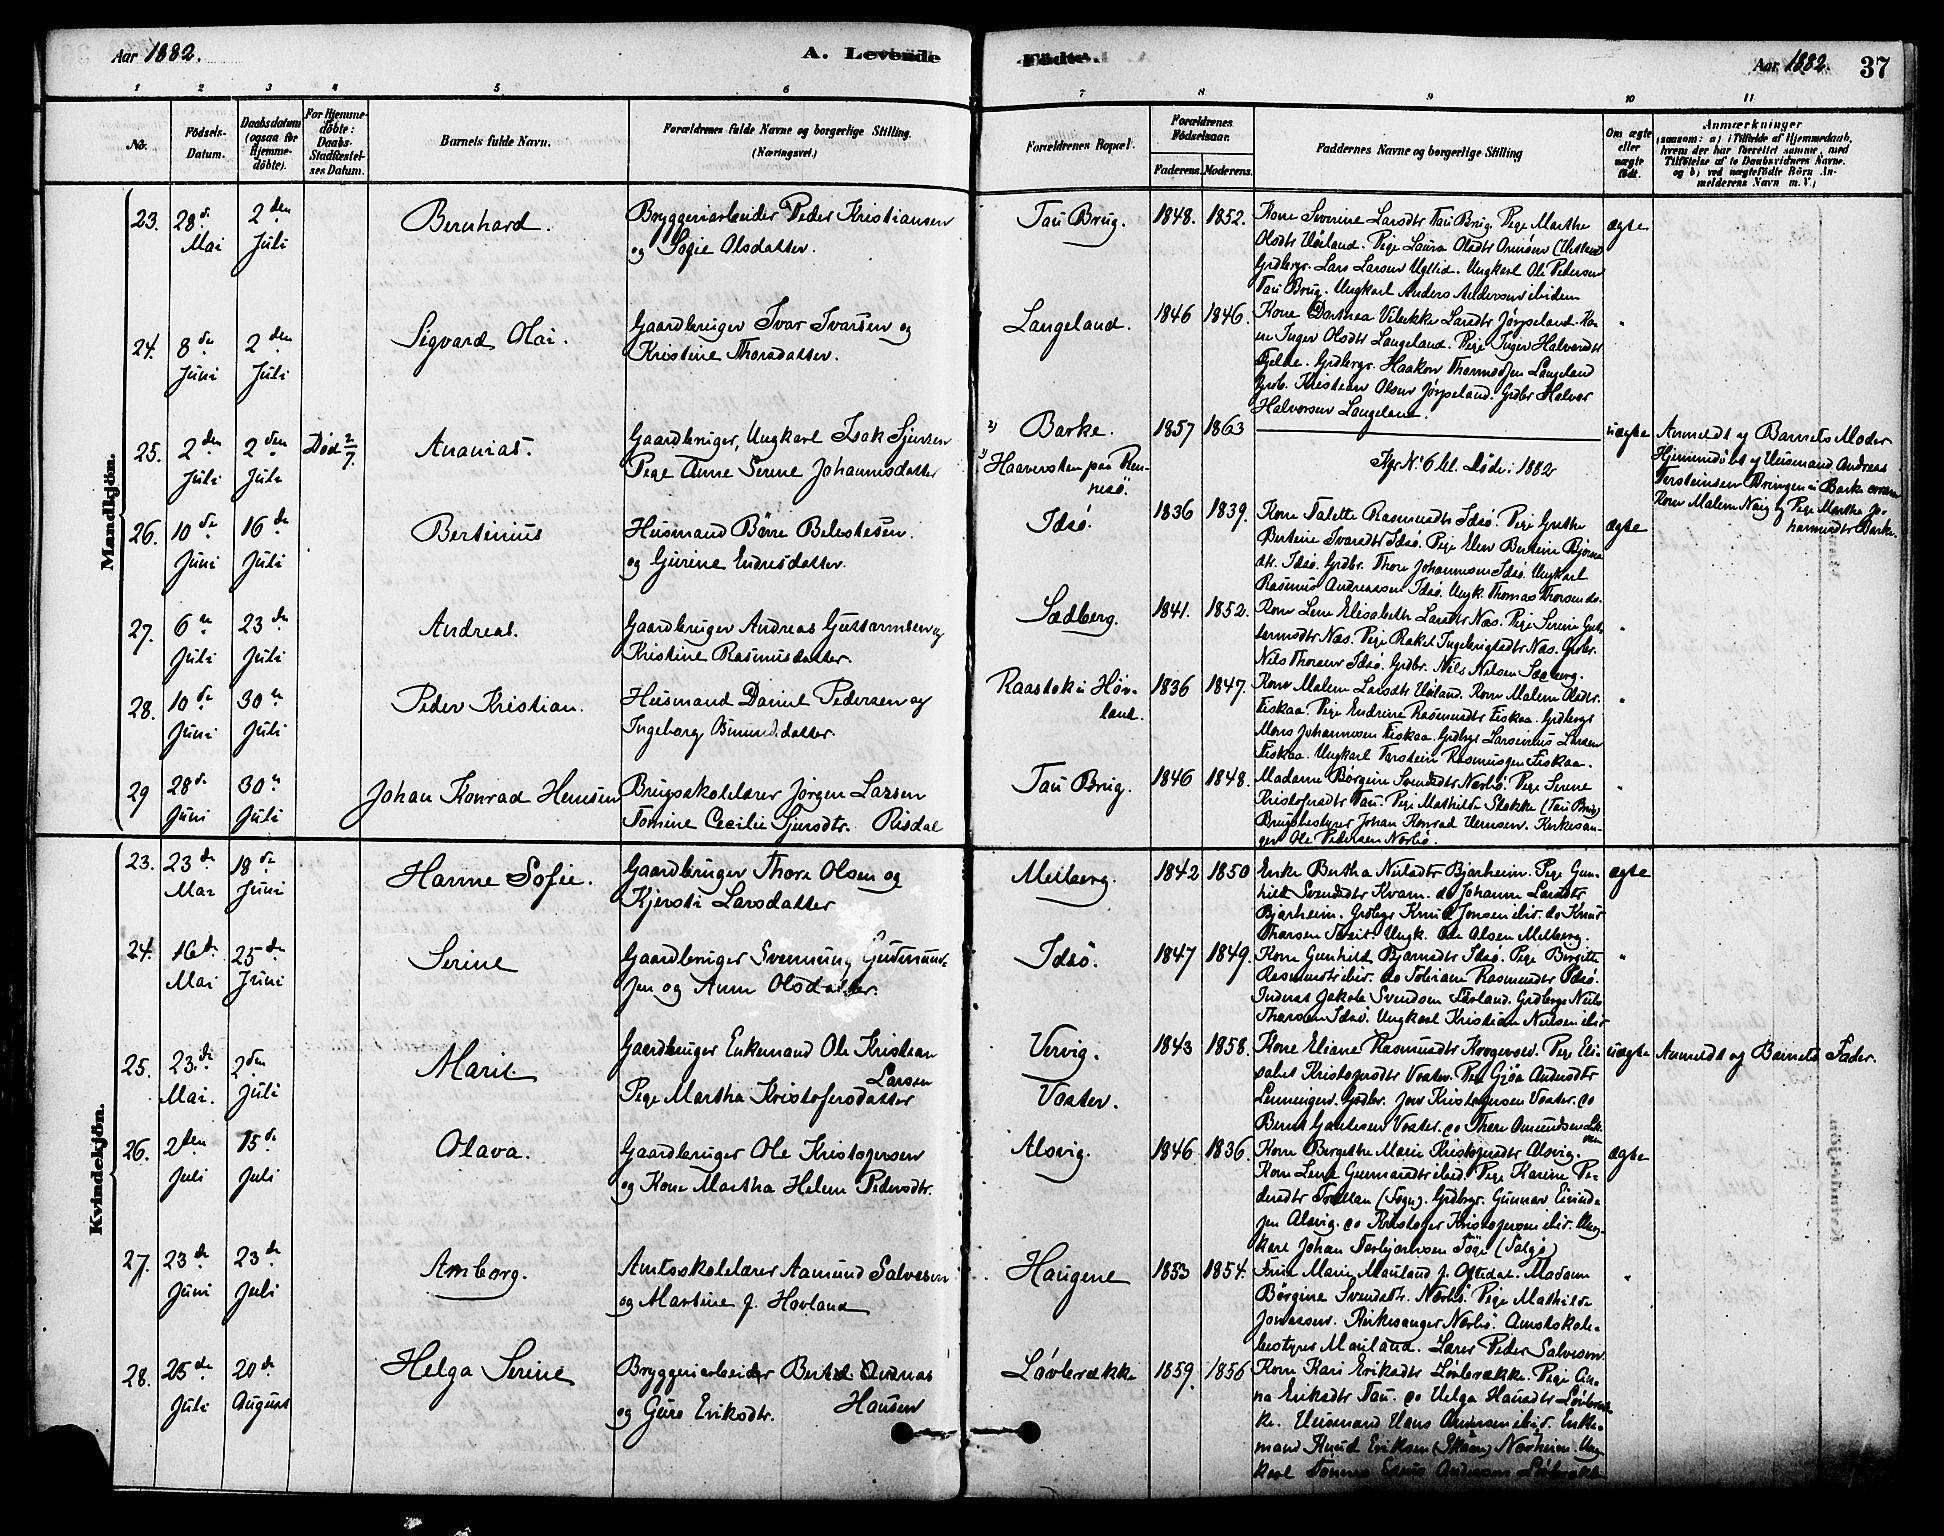 Aar 1882.
A. Levende
Födte.
Aar 1882.
37
1 2 3 4 5 6 7 8 9 10 11
No.
Födsels-Datum.
Daabsdatum (ogsaa for Hjemme-döbte).
For Hjemme-döbte: Daabs-Stadfæstel-ses Datum.
Barnets fulde Navn.
Forældrenes fulde Navne og borgerlige Stilling. (Næringsvei.)
Forældrenes Bopæl.
Forældrenes Födselsaar.
Faderens. Moderens.
Faddernes Navne og borgerlige Stilling
Om ægte eller uægte födt.
Anmærkninger
(saasom: a) i Tilfælde af Hjemmedaab,
hvem der har forrettet samme, med
Tilföielse af to Daabsvidners Navne,
og b) ved uægtefödte Börn An-
melderens Navn m. V.)
Mandkjön.
23. 28de Mai 2den Juli Bernhard.
Bryggeriarbeider Peder Kristiansen
og Sofie Olsdatter.
Tau Brug. 1848. 1852.
Kone Siverine Larsdtr Tau Brug. Pige Marthe
Olsdtr Høiland. Pige Laura Olsdtr
Grdbrgr. Lars Larsen Ole Pedersen
Tau Brug. Ungkarl Anders Andersen ibidem
ægte
24. 8de Juni 2den Juli Sigvard Olai.
Gaardbruger Ivar Ivarsen og
Kristine Thorsdatter.
Langeland. 1846 1846.
Kone Dorthea Vibekke Larsdtr Jørpeland. Ko-
ne Inger Olsdtr Langeland. Pige Inger Halvorsdtr
Fjelde. Grdbrgr. Haakon Langeland
Grdb. Kristian Olsen Jørpeland. Grdbr Halvor
Halvorsen Langeland.
"
25. 2den Juli 2den Juli Død 2/7. Ananias.
Gaardbruger, Ungkarl Isak Sjursen
Pige Anne Serine Johannesdatter
2) Barke.
1) Haaversten paa Ren-
nesö.
1857 1863
Fgr No 6 bl. Döde: 1882
uægte
Anmeldt af Barnets Moder
Hjemmedöbt af Husmand Andreas
Torsteinsen Bringen i Barke
Kone Malene Naig og Pige Marthe Jo-
hannesdtr Barke.
26. 10de Juni 16de Juli Bertinius
Husmand Börre Belestesen.
og Gurine Endresdatter.
Idsö. 1836 1839.
Kone Talette Rasmusdtr Idsö. Pige Grethe
Bertine Ivarsdtr Idsö. Pige Elen Bertine Bjorns-
dtr. Idsö. Grdbr. Thore Johannesen Idsö. Ungkarl
Rasmus Andreassen Idsö. Ungk Thomas Thorsen do.
ægte
27. 6te Juli 23de Juli Andreas.
Gaardbruger Andreas Guttormsen og
Kristine Rasmusdatter.
Sedberg. 1841. 1852.
Kone Lene Elisabeth Larsdtr Næs. Pige Serine Gut-
tormsdtr Næs. Pige Rakel Ingebrigtsdtr Næs. Grdbr.
Nils Thorsen Idsö. Grdbr. Nils Nilsen Sedberg.
"
28. 10de Juni 30te Juli Peder Kristian.
Husmand Daniel Pedersen og
Ingeborg Omundsdatter.
Raastok i Høv-
land.
1836 1847.
Kone Malene Larsdtr Høiland. Kone Malene Olsdtr.
Fiskaa. Pige Endrine Rasmusdtr Fiskaa. Grdbrgr
Mons Johannesen Fiskaa. Grdbrgr Larsinius Larsen
Fiskaa. Ungkarl Torstein Rasmussen Fiskaa.
"
29 28de Juni 30te Juli Johan Konrad Hemsen
Brugsskolelærer Jørgen Larsen
Tomine Cecilie Sjursdtr. Risdal
Tau Brug. 1846 1848.
Madame Börgine Svendsdtr Nærbö. Pige Serine
Kristofersdtr Tau. Pige Mathilde Stokke (Tau Brug)
Brugsbestyrer Johan Konrad Hemsen. Kirkesan-
ger Ole Pedersen Nærbö.
"
Kvindekjön.
23. 23de Mai 18de Juni Hanne Sofie.
Gaardbruger Thore Olsen og
Kjersti Larsdatter
Melberg. 1842 1850
Enke Bertha Nilsdtr Bjarheim. Pige Gun-
hild Svendsdtr Kvam. do Johanne Larsdtr
Bjarheim. Grdbrgr Knud Jonsen ibid. do Knut
Tharsen Ungk. Ole Olsen Melberg.
ægte
24. 16de Mai 25de Juni Serine
Gaardbruger Svenning Gudmund-
sen og Anne Olsdatter.
Idsö. 1847 1849.
Kone Gunhild Bjørnsdtr Idsö. Pige Birgitte
Rasmusdtr ibid. do Toliane Rasmusdtr Idsö.
Inderst Jakob Svendsen Tærland. Grdbrgr Nils
Tharsen Idsö. Ungkarl Kristian Nilsen ibid
"
25. 23de Mai. 2den Juli Marie
Gaardbruger Enkemand Ole Kristian
Larsen
Pige Martha Kristofersdatter
Vervig.
Voster.
1843 1858.
Kone Eliane Rasmusdtr Pige Eli-
sabet Kristofersdtr Voster. Pige Gjöa Andersdtr
Grdbr. Jon Kristofersen Voster. do
Bernt Gautesen Voster. do Thore Omundsen
uægte
Anmeldt af Barnets Fader.
26. 2den Juli 15de Juli Olava.
Gaardbruger Ole Kristofersen
og Kone Martha Helene Pedersdtr.
Alsvig. 1846 1836.
Kone Bergethe Marie Kristofersdtr Alsvig.
Kone Lene Gunnarsdtr ibid. Pige Karine Pe-
dersdtr (Sogn). Grdbrgr. Gunnar Eivind-
sen Alsvig. do Kristofer Kristofersen ibid. Ung-
karl Johan Torbjørnsen
ægte
27. 23de Juni 23de Juli Amborg.
Amtsskolelærer Aamund Salvesen
og Martine f. Hovland
Haugene 1853 1854.
Fru Marie Mauland f. Oftedal. Madam
Börgine Svendsdtr. Nærbö. Pige Mathilde
Jonassen. Kirkesanger Nærbö. Amtsskole-
bestyrer Mauland. Lærer Peder Salvesen.
"
28. 25de Juli 20de August Helga Serine
Bryggeriarbeider Berted Andreas
Hansen
og Guro Eriksdtr.
Løvbrække 1859. 1856
Kone Kari Eriksdtr Løvbrække. Pige An-
na Eriksdtr Tau. do Helga Hansdtr Løvbræk-
ke. Husmand Hans Andersen ibid. Enke-
mand Knud Eriksen Nærheim. Ung-
karl Tønnes Andersen Løvbrække